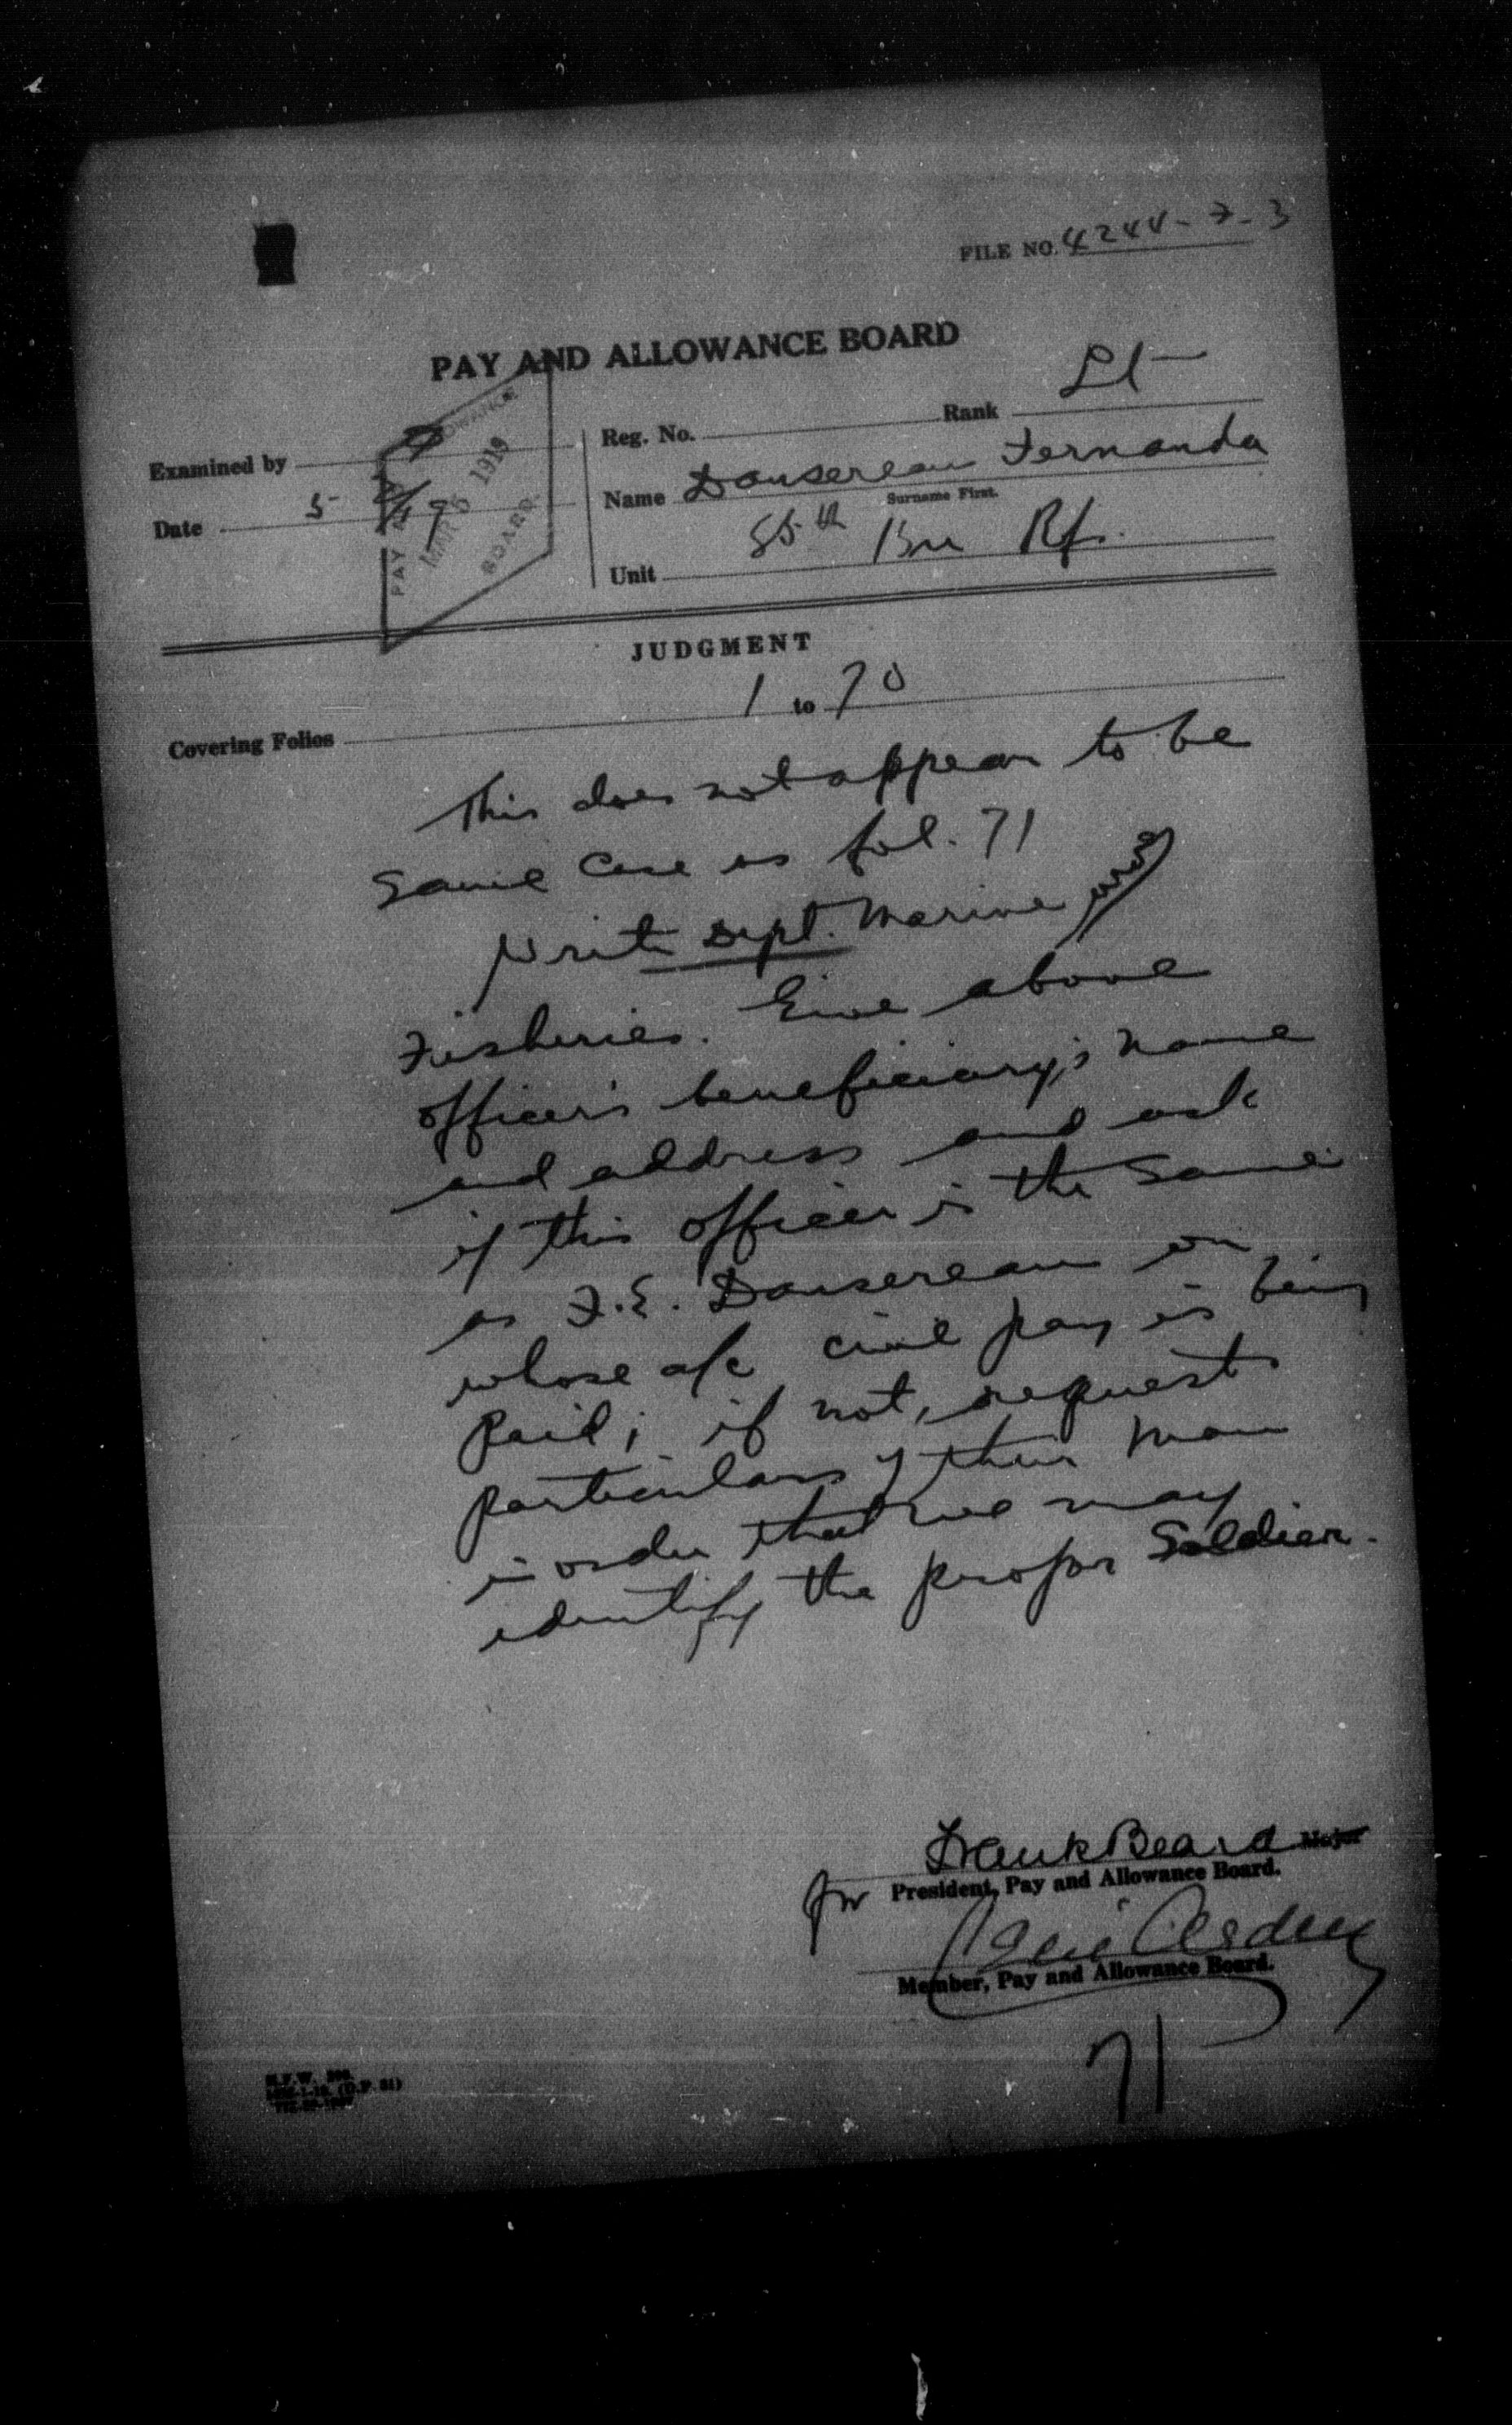 FILE NO. 4244-7-3
PAY AND ALLOWANCE BOARD
Reg. No. Rank Lt
Examined by
Name Dansereau Fernanda
Surname First.
Date 5
PAY AND ALLOWANCE
MAR 5 1919
BOARD
Unit 85th Bn Rfs.
JUDGMENT
Covering Folios 1 to 70
This does not appear to be
same case as fol. 71
Write Dept. Marine and
Fisheries. Give above
officer's beneficiary's name
and address and ask
if this officer is the same
as F.E. Dansereau on
whose a/c civil pay is being
paid; if not, request
particulars of their man
in order that we may
identify the proper Soldier.
Frank Beard Major
for President, Pay and Allowance Board.
Member, Pay and Allowance Board.
71
M.F.W.